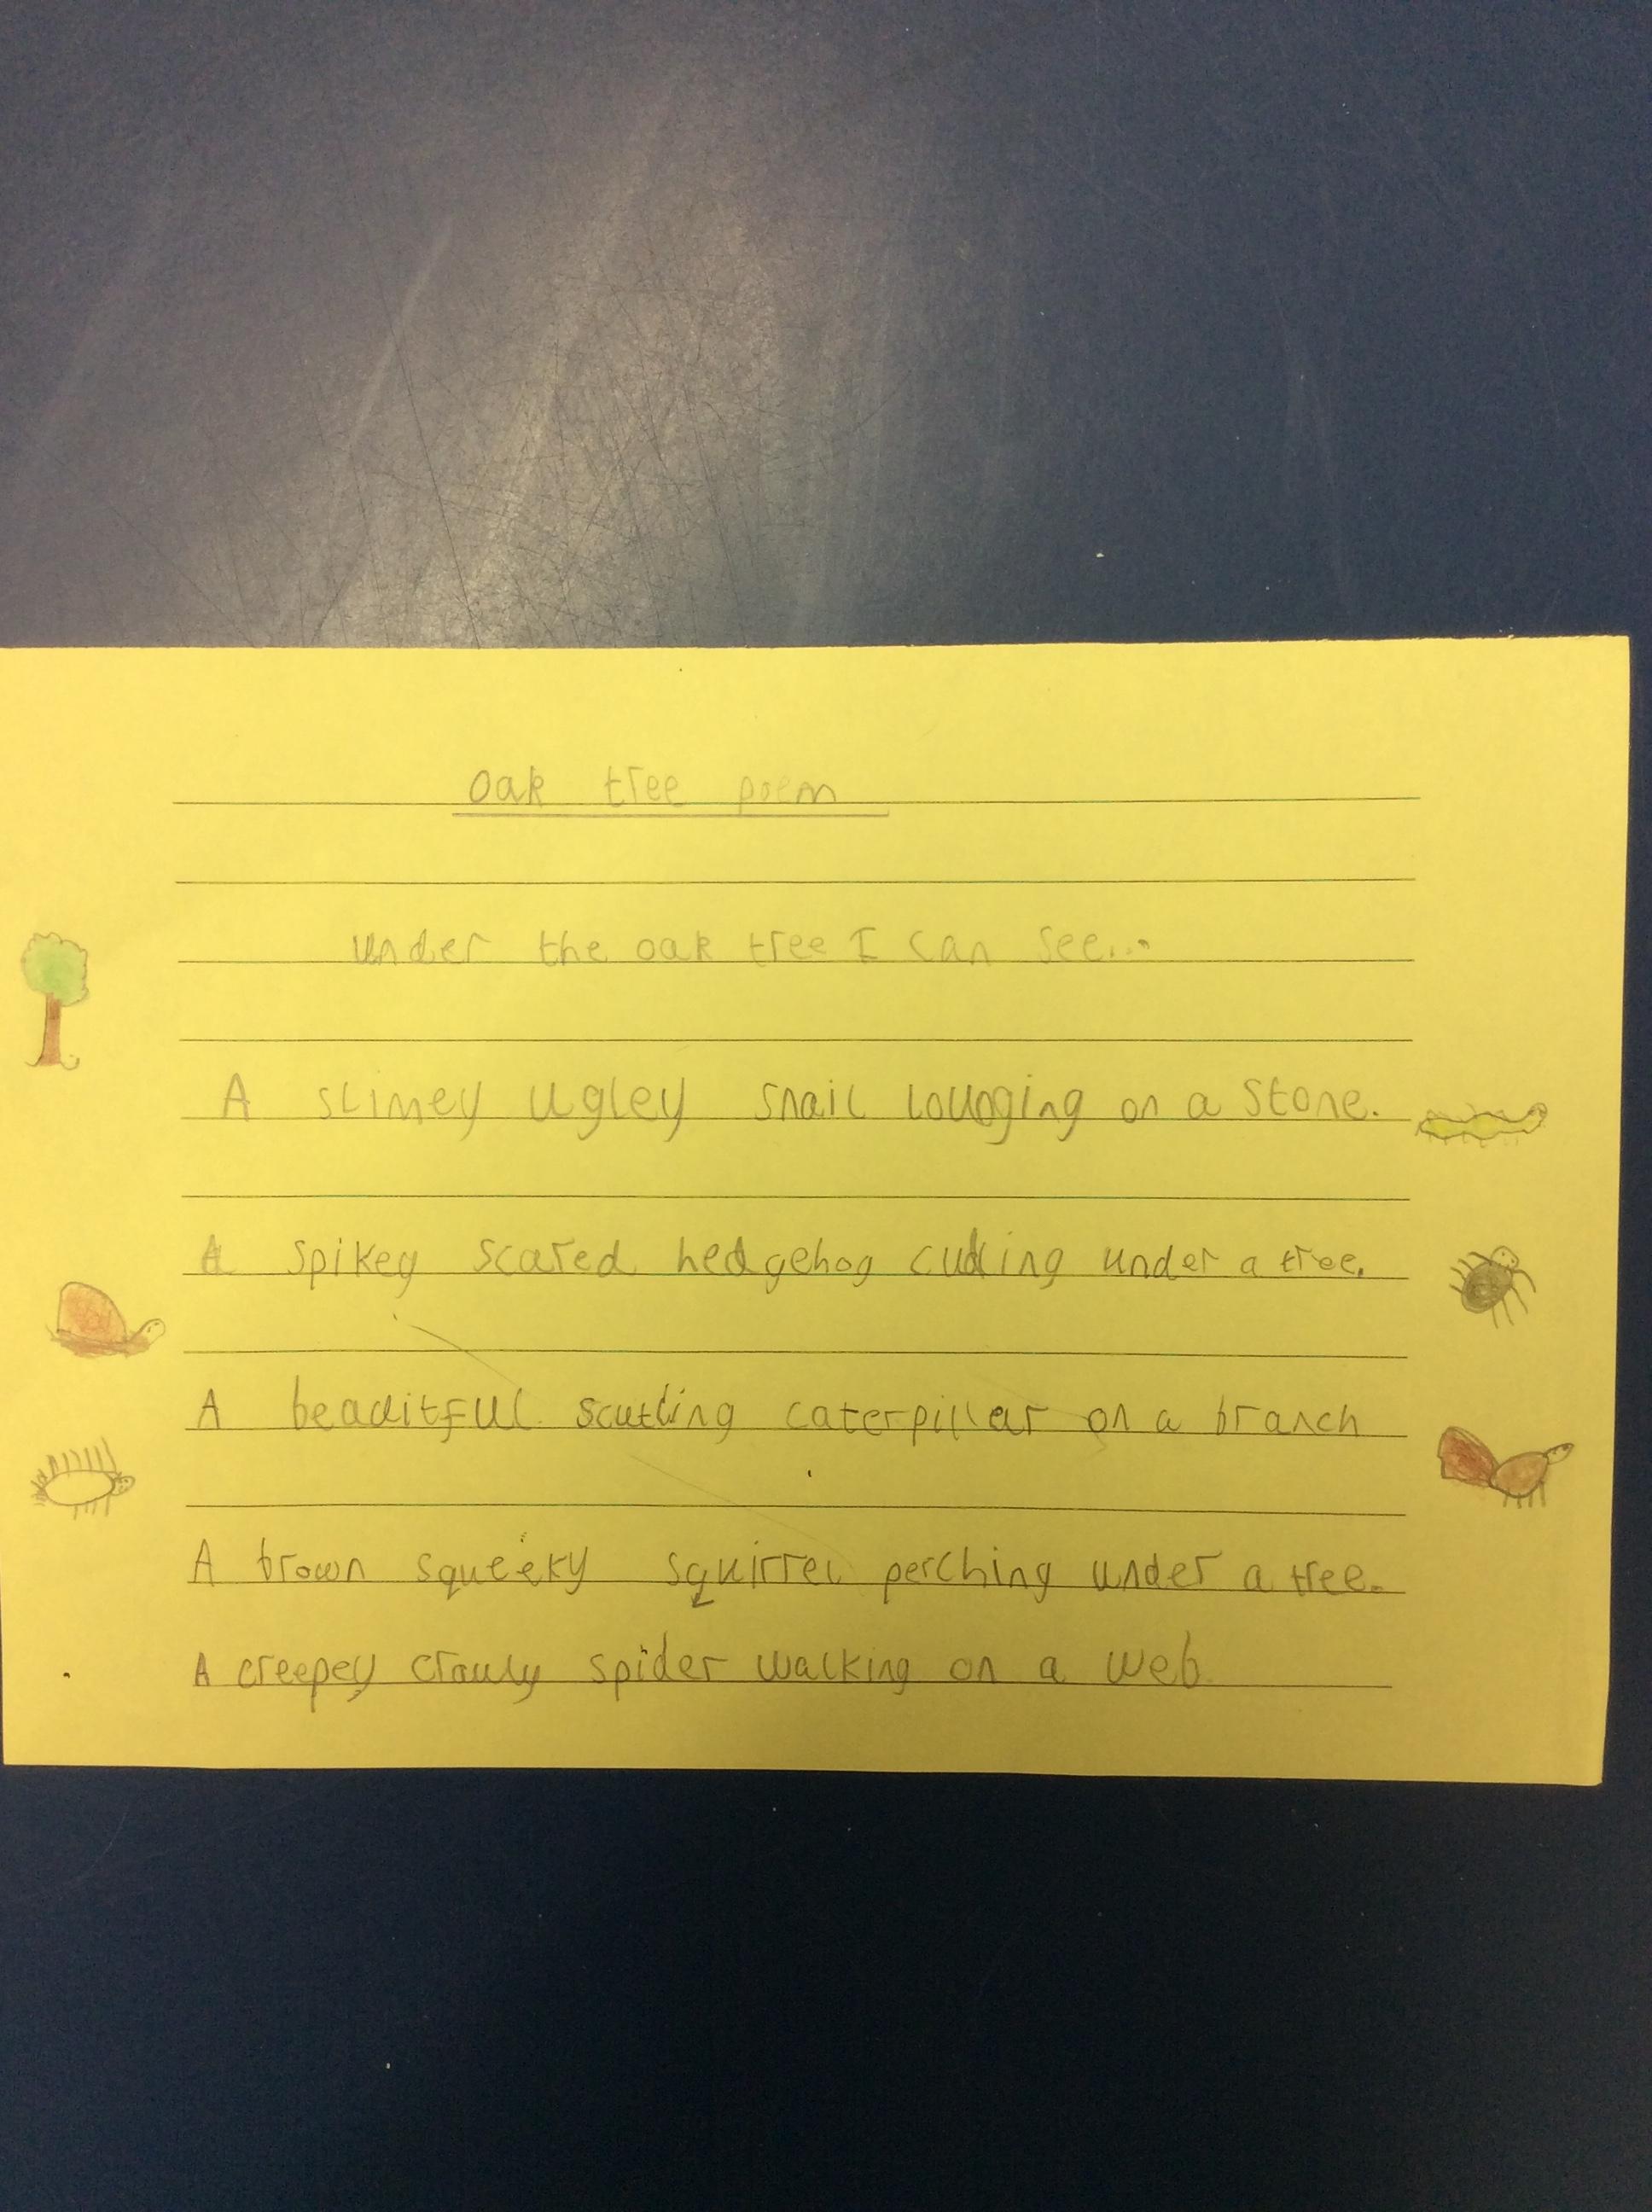 oak tree poem
under the oak tree I can see...
A slimey ugley snail lounging on a stone.
A spikey scared hedgehog curling under a tree.
A beauitful scutling caterpillar on a branch
A brown squeeky squirrel perching under a tree.
A creepey crawly spider walking on a web